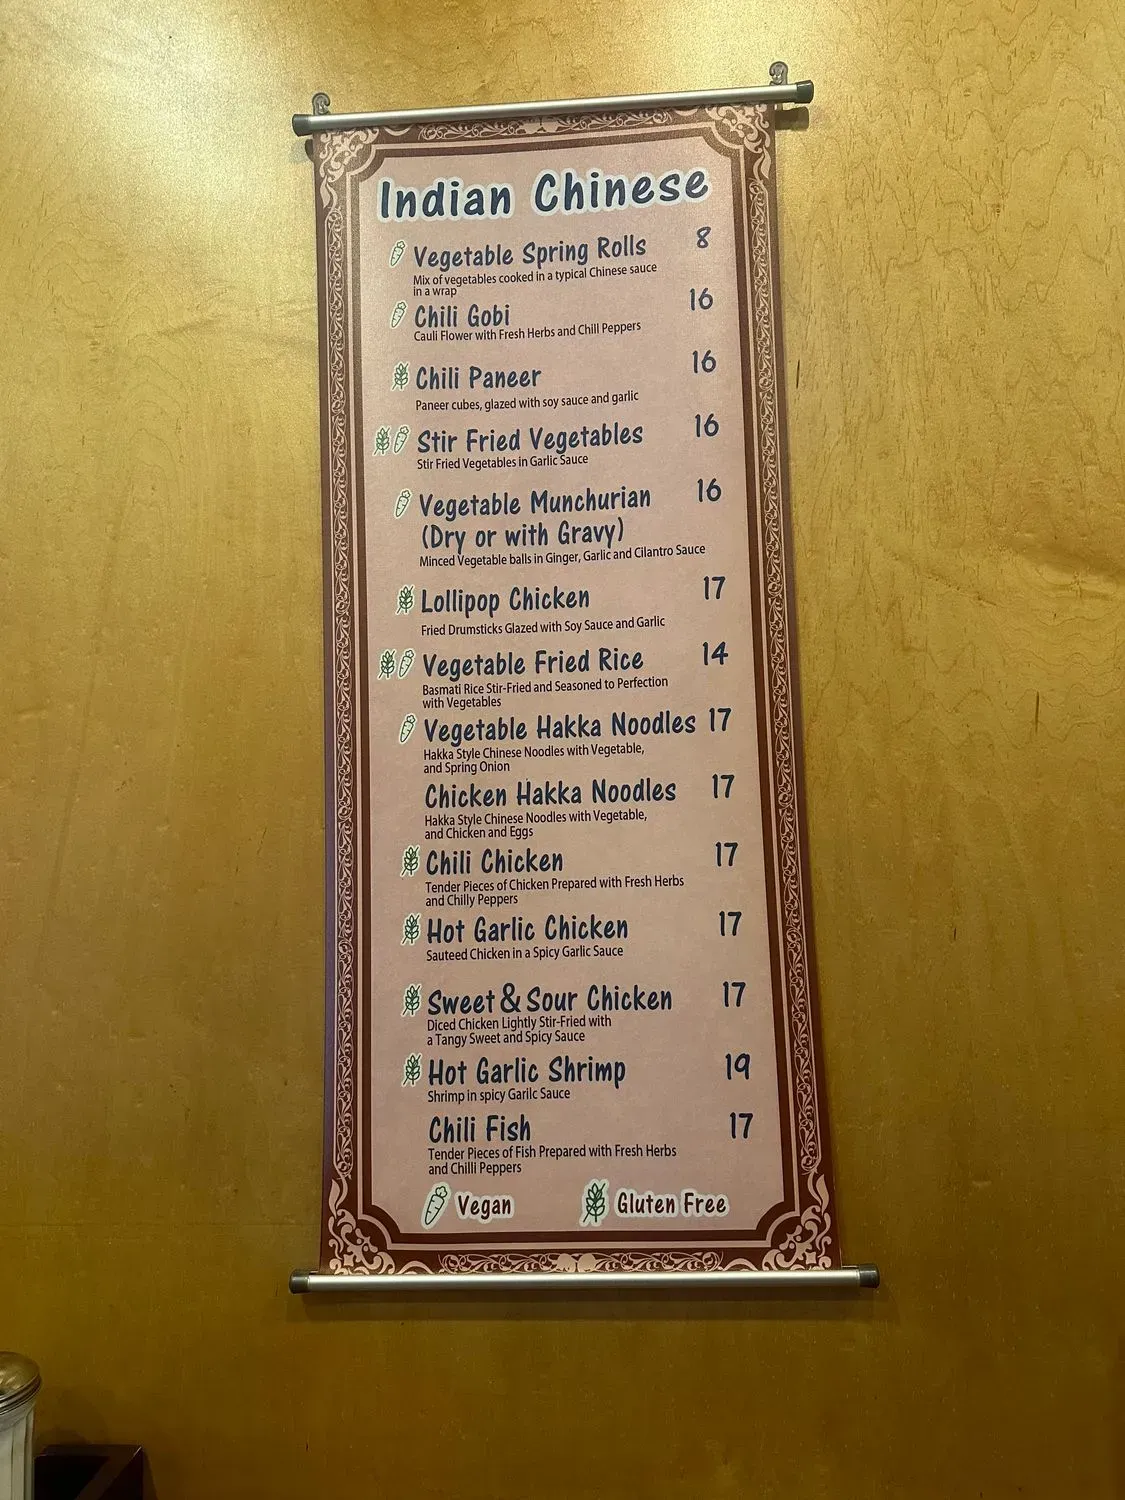 Indian Chinese
Vegetable Spring Rolls 8
Mix of vegetables cooked in a typical Chinese sauce
in a wrap
Chili Gobi 16
Cauli Flower with Fresh Herbs and Chill Peppers
Chili Paneer 16
Paneer cubes, glazed with soy sauce and garlic
Stir Fried Vegetables 16
Stir Fried Vegetables in Garlic Sauce
Vegetable Munchurian 16
(Dry or with Gravy)
Minced Vegetable balls in Ginger, Garlic and Cilantro Sauce
Lollipop Chicken 17
Fried Drumsticks Glazed with Soy Sauce and Garlic
Vegetable Fried Rice 14
Basmati Rice Stir-Fried and Seasoned to Perfection
with Vegetables
Vegetable Hakka Noodles 17
Hakka Style Chinese Noodles with Vegetable,
and Spring Onion
Chicken Hakka Noodles 17
Hakka Style Chinese Noodles with Vegetable,
and Chicken and Eggs
Chili Chicken 17
Tender Pieces of Chicken Prepared with Fresh Herbs
and Chilly Peppers
Hot Garlic Chicken 17
Sauteed Chicken in a Spicy Garlic Sauce
Sweet & Sour Chicken 17
Diced Chicken Lightly Stir-Fried with
a Tangy Sweet and Spicy Sauce
Hot Garlic Shrimp 19
Shrimp in spicy Garilc Sauce
Chili Fish 17
Tender Pieces of Fish Prepared with Fresh Herbs
and Chilli Peppers
Vegan Gluten Free